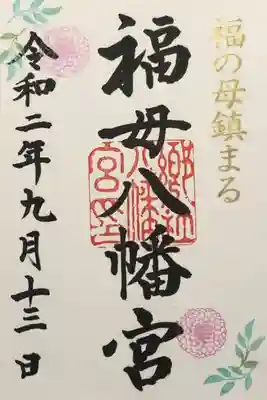 福の母鎮まる
福母八幡宮
郷社
八幡
令和二年九月十三日